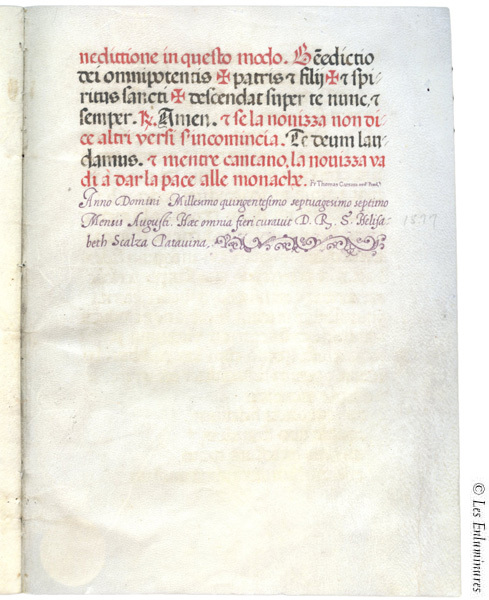 nedittione in questo modo. Bẽedictio
dei omnipotentis ✠ patris & filij ✠ & spi
ritus sancti ✠ descendat super te nunc, &
semper. ℟. Amen. & se la nouizza non di
ce altri versi s'incomincia. Te deum lau
damus. & mentre cantano, la nouizza va
di à dar la pace alle monache. Fr Thomas
Anno Domini Millesimo quingentesimo septuagesimo septimo
Mensis Augusti. Hæc omnia fieri curavit D. R. S. Helisa:
beth Scalza Patavina.
© Les Enluminures